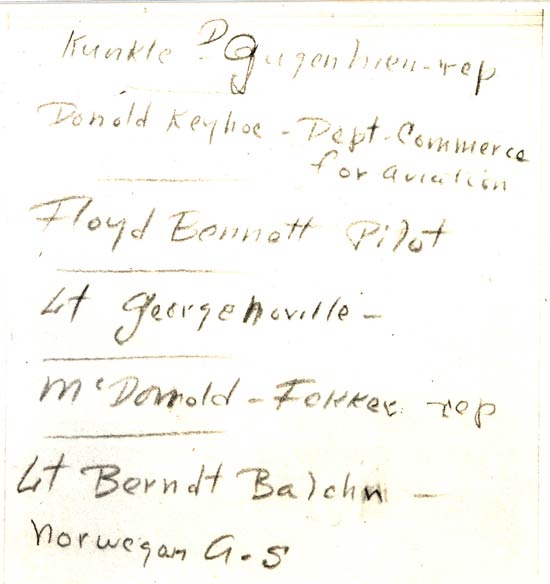 Kunkle - D Gugenhien-rep
Donald Keyhoe - Dept-Commerce
for aviation
Floyd Bennott Pilot
Lt George Noville -
McDonald - Fokker rep
Lt Berndt Balchn -
Norwegan G.S